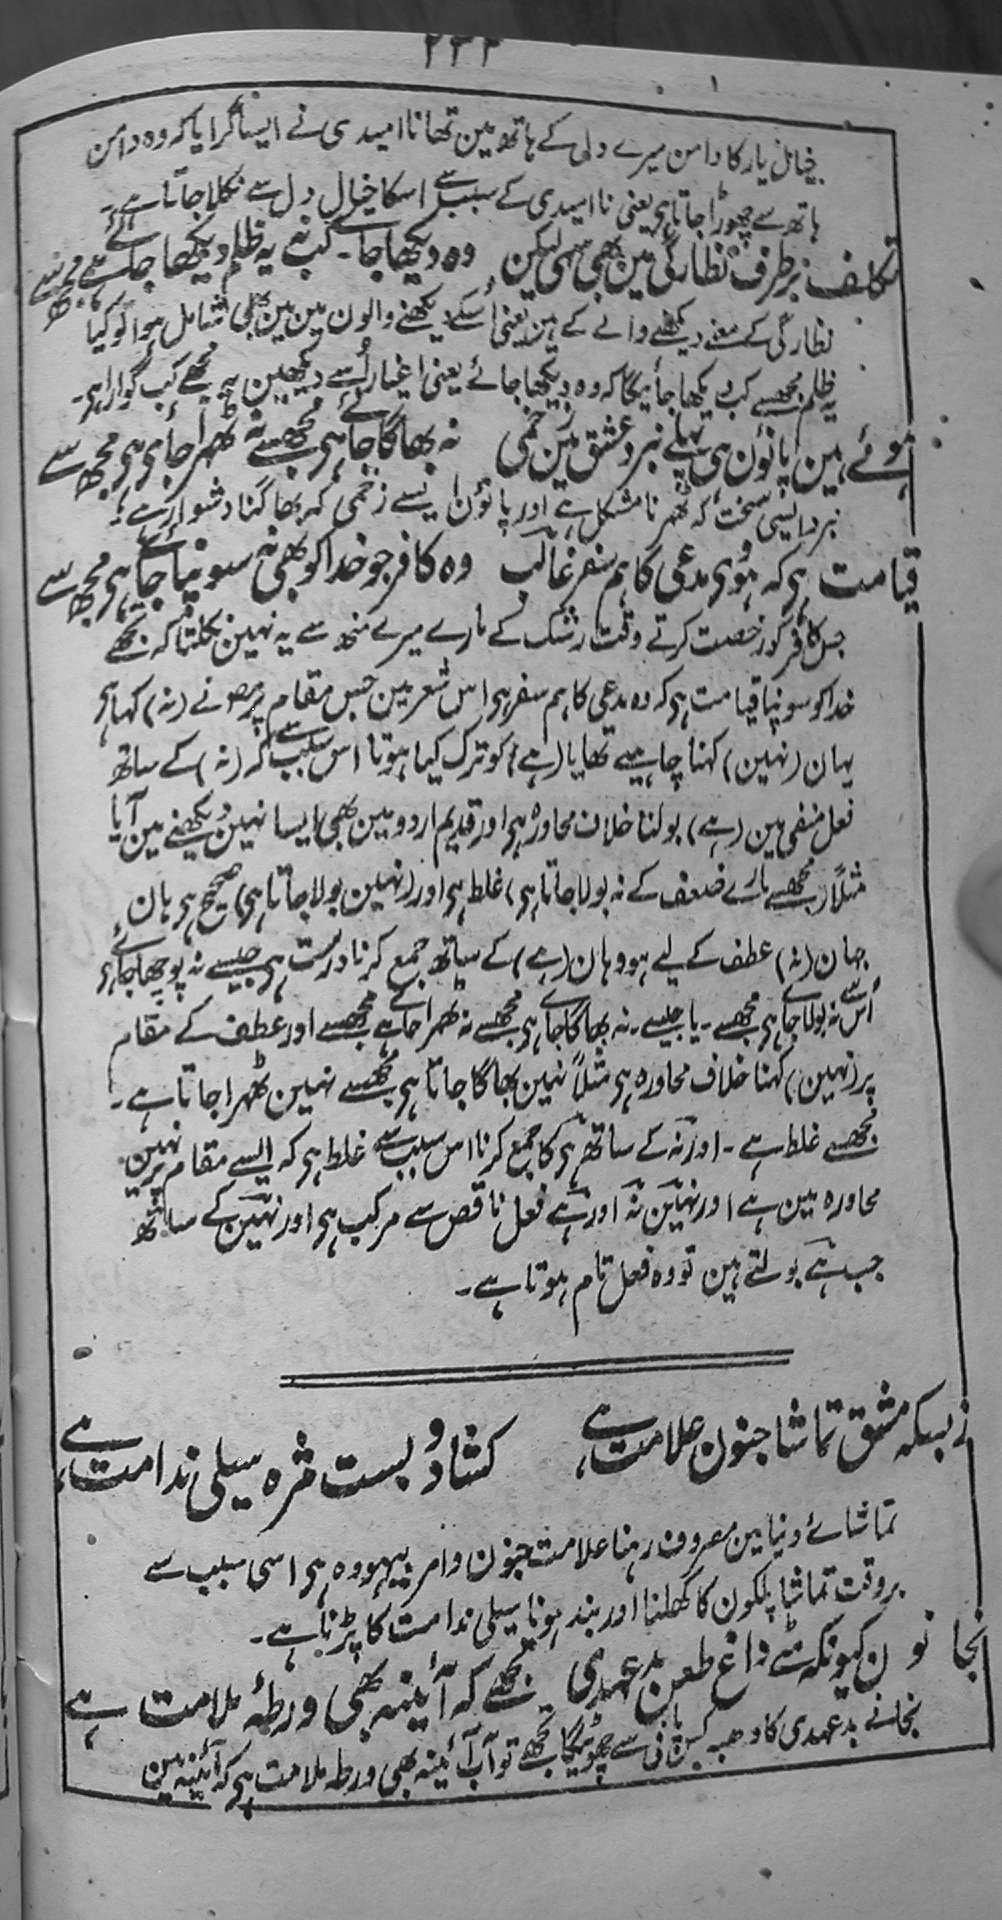 ۲۳۲
خیال یار کا دامن میرے دل کے ہاتھ مین تھا نا امیدی نے ایسا گرایا کہ وہ دامن
ہاتھ سے چھوٹا جاتا ہی یعنی نا امیدی کے سبب سے اسکا خیال دل سے نکلا جاتا ہے۔
تکلف برطرف نظارگی مین بھی سہی لیکن وہ دیکھا جائے۔ کب یہ ظلم دیکھا جائے ہے مجھ سے
نظارگی کے معنے دیکھنے والے کے ہین یعنی اُسکے دیکھنے والون مین مین بھی شامل ہوا تو کیا
یہ ظلم مجھسے کب دیکھا جائیگا کہ وہ دیکھا جائے یعنی اغیار اُسے دیکھین یہ مجھے کب گوارا ہی۔
ہوئے ہین پانؤن ہی پہلے نبرد عشق مین زخمی نہ بھاگا جائے ہی مجھسے نہ ٹھہرا جائے ہی مجھ سے
نبرد ایسی سخت کہ ٹھہرنا مشکل ہے اور پانؤن ایسے زخمی کہ بھاگنا دشوار ہے۔
قیامت ہی کہ ہووی مدعی کا ہم سفر غالب وہ کافر جو خدا کو بھی نہ سونپا جائے ہی مجھ سے
جس کافر کو رخصت کرتے وقت رشک کے مارے میرے منھ سے یہ نہین نکلتا کہ تجھے
خدا کو سونپا قیامت ہی کہ وہ مدعی کا ہم سفر ہی اس شعر مین جس مقام پر مصؔ نے (نہ) کہا ہی
یہان (نہین) کہنا چاہیے تھا یا (ہے) کو ترک کیا ہوتا اس سبب سے کہ (نہ) کے ساتھ
فعل منفی مین (ہے) بولنا خلاف محاورہ ہی اور قدیم اردو مین بھی ایسا نہین دیکھنے مین آیا
مثلاً (مجھسے مارے ضعف کے نہ بولا جاتا ہی) غلط ہی اور (نہین بولا جاتا ہی) صحیح ہی ہان
جہان (نہ) عطف کے لیے ہو وہان (ہے) کے ساتھ جمع کرنا درست ہی جیسے نہ پوچھا جائے ہی
اُس سے نہ بولا جائے ہی مجھسے۔ یا جیسے۔ نہ بھاگا جائے ہی مجھسے نہ ٹھہرا جائے ہے مجھسے اور عطف کے مقام
پر (نہین) کہنا خلاف محاورہ ہی مثلاً نہین بھاگا جاتا ہی مجھسے نہین ٹھہرا جاتا ہے۔
مجھسے غلط ہے۔ اور نہ کے ساتھ ہی کا جمع کرنا اس سبب سے غلط ہی کہ ایسے مقام پر نہین
محاورہ مین ہے اور نہین نہ اور ہے فعل ناقص سے مرکب ہی اور نہین کے ساتھ
جب ہے بولتے ہین تو وہ فعل تام ہوتا ہے۔
زبسکہ مشق تماشا جنون علامت ہے کشاد و بست مژہ سیلی ندامت ہے
تماشائے دنیا مین مصروف رہنا علامت جنون و امر بیہودہ ہی اسی سبب سے
بروقت تماشا پلکون کا کھلنا اور بند ہونا سیلی ندامت کا پڑنا ہے۔
نجانون کیونکہ مٹے داغ طعن بدعہدی تجھے کہ آئینہ بھی ورطۂ ملامت ہے
نجانے بدعہدی کا دھبہ کس پانی سے چھوٹیگا تجھے تو آب آئینہ بھی ورطہ ملامت ہی کہ آئینہ مین